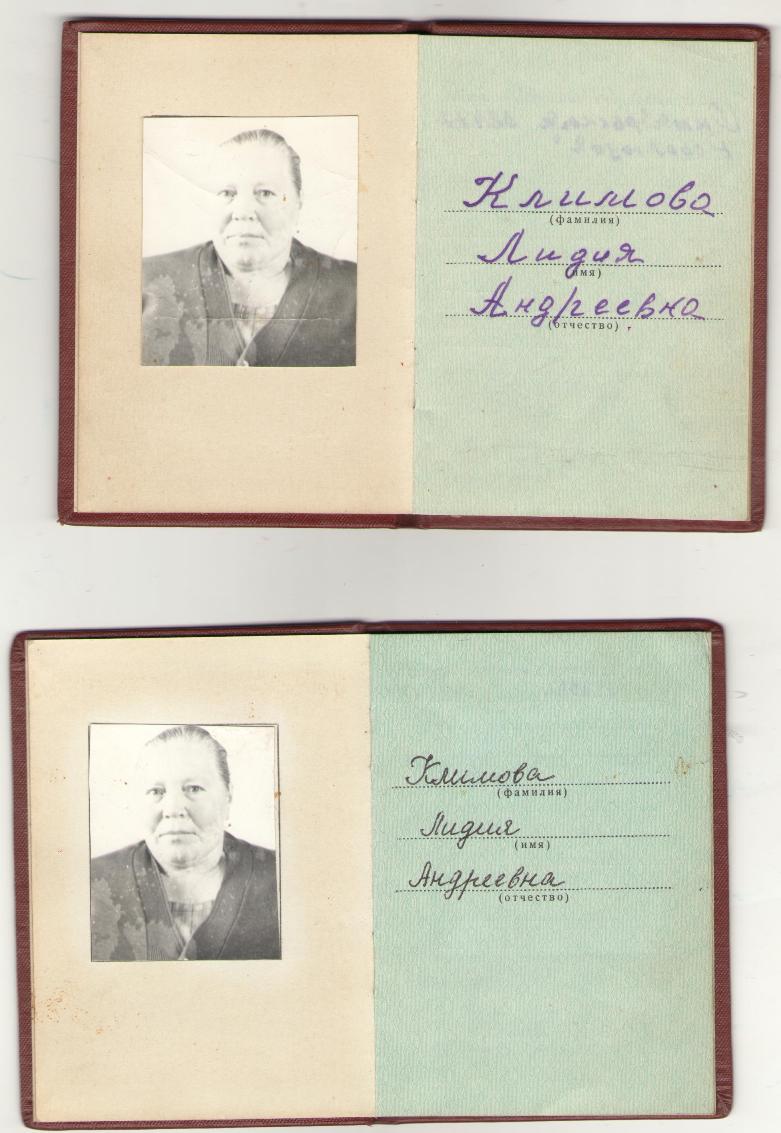 Климова
(фамилия)
Лидия
(имя)
Андреевна
(отчество)
Климова
(фамилия)
Лидия
(имя)
Андреевна
(отчество)